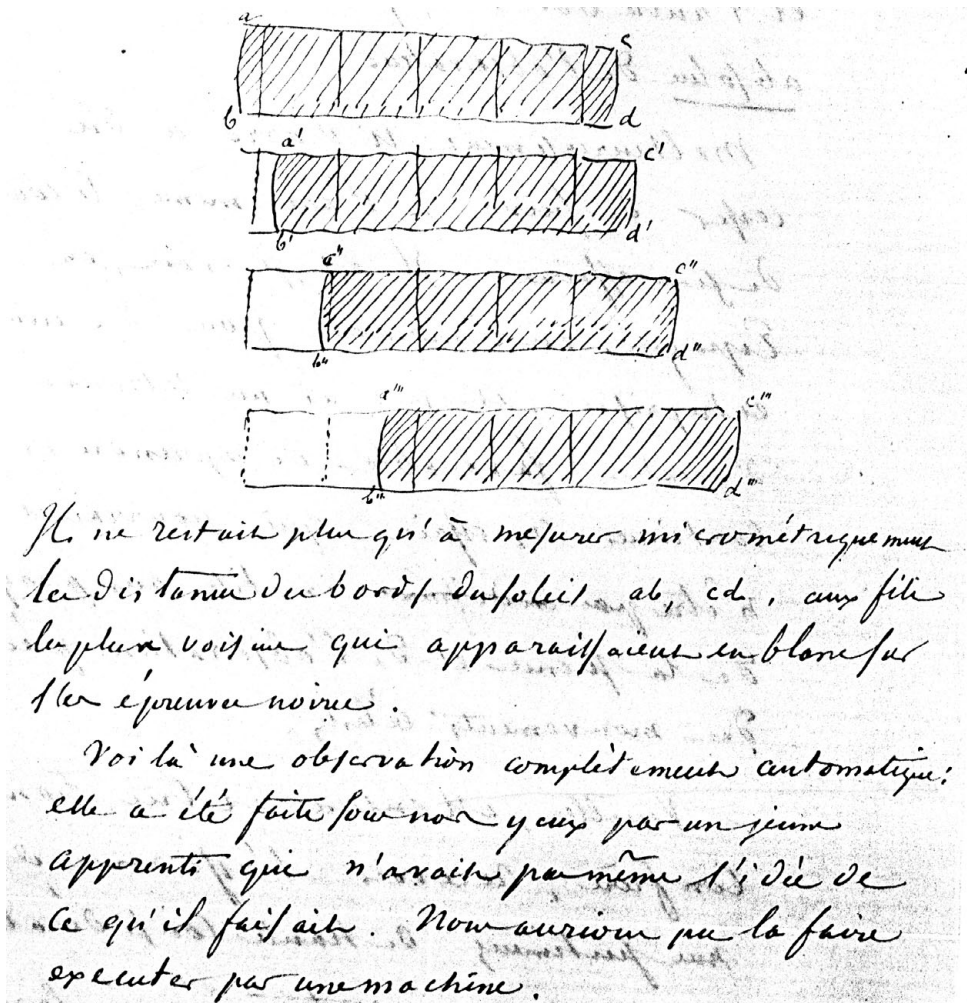 a c
b d
a' c'
b' d'
a'' c''
b'' d''
a''' c'''
b''' d'''
Il ne restait plus qu'à mesurer micrométriquement
les distances des bords du soleil ab, cd, aux fils
les plus voisins qui apparaissaient en blanc sur
les épreuves noires.
Voilà une observation complètement automatique:
elle a été faite sous nos yeux par un jeune
apprenti qui n'avait pas même l'idée de
ce qu'il faisait. Nous aurions pu la faire
executer par une machine.